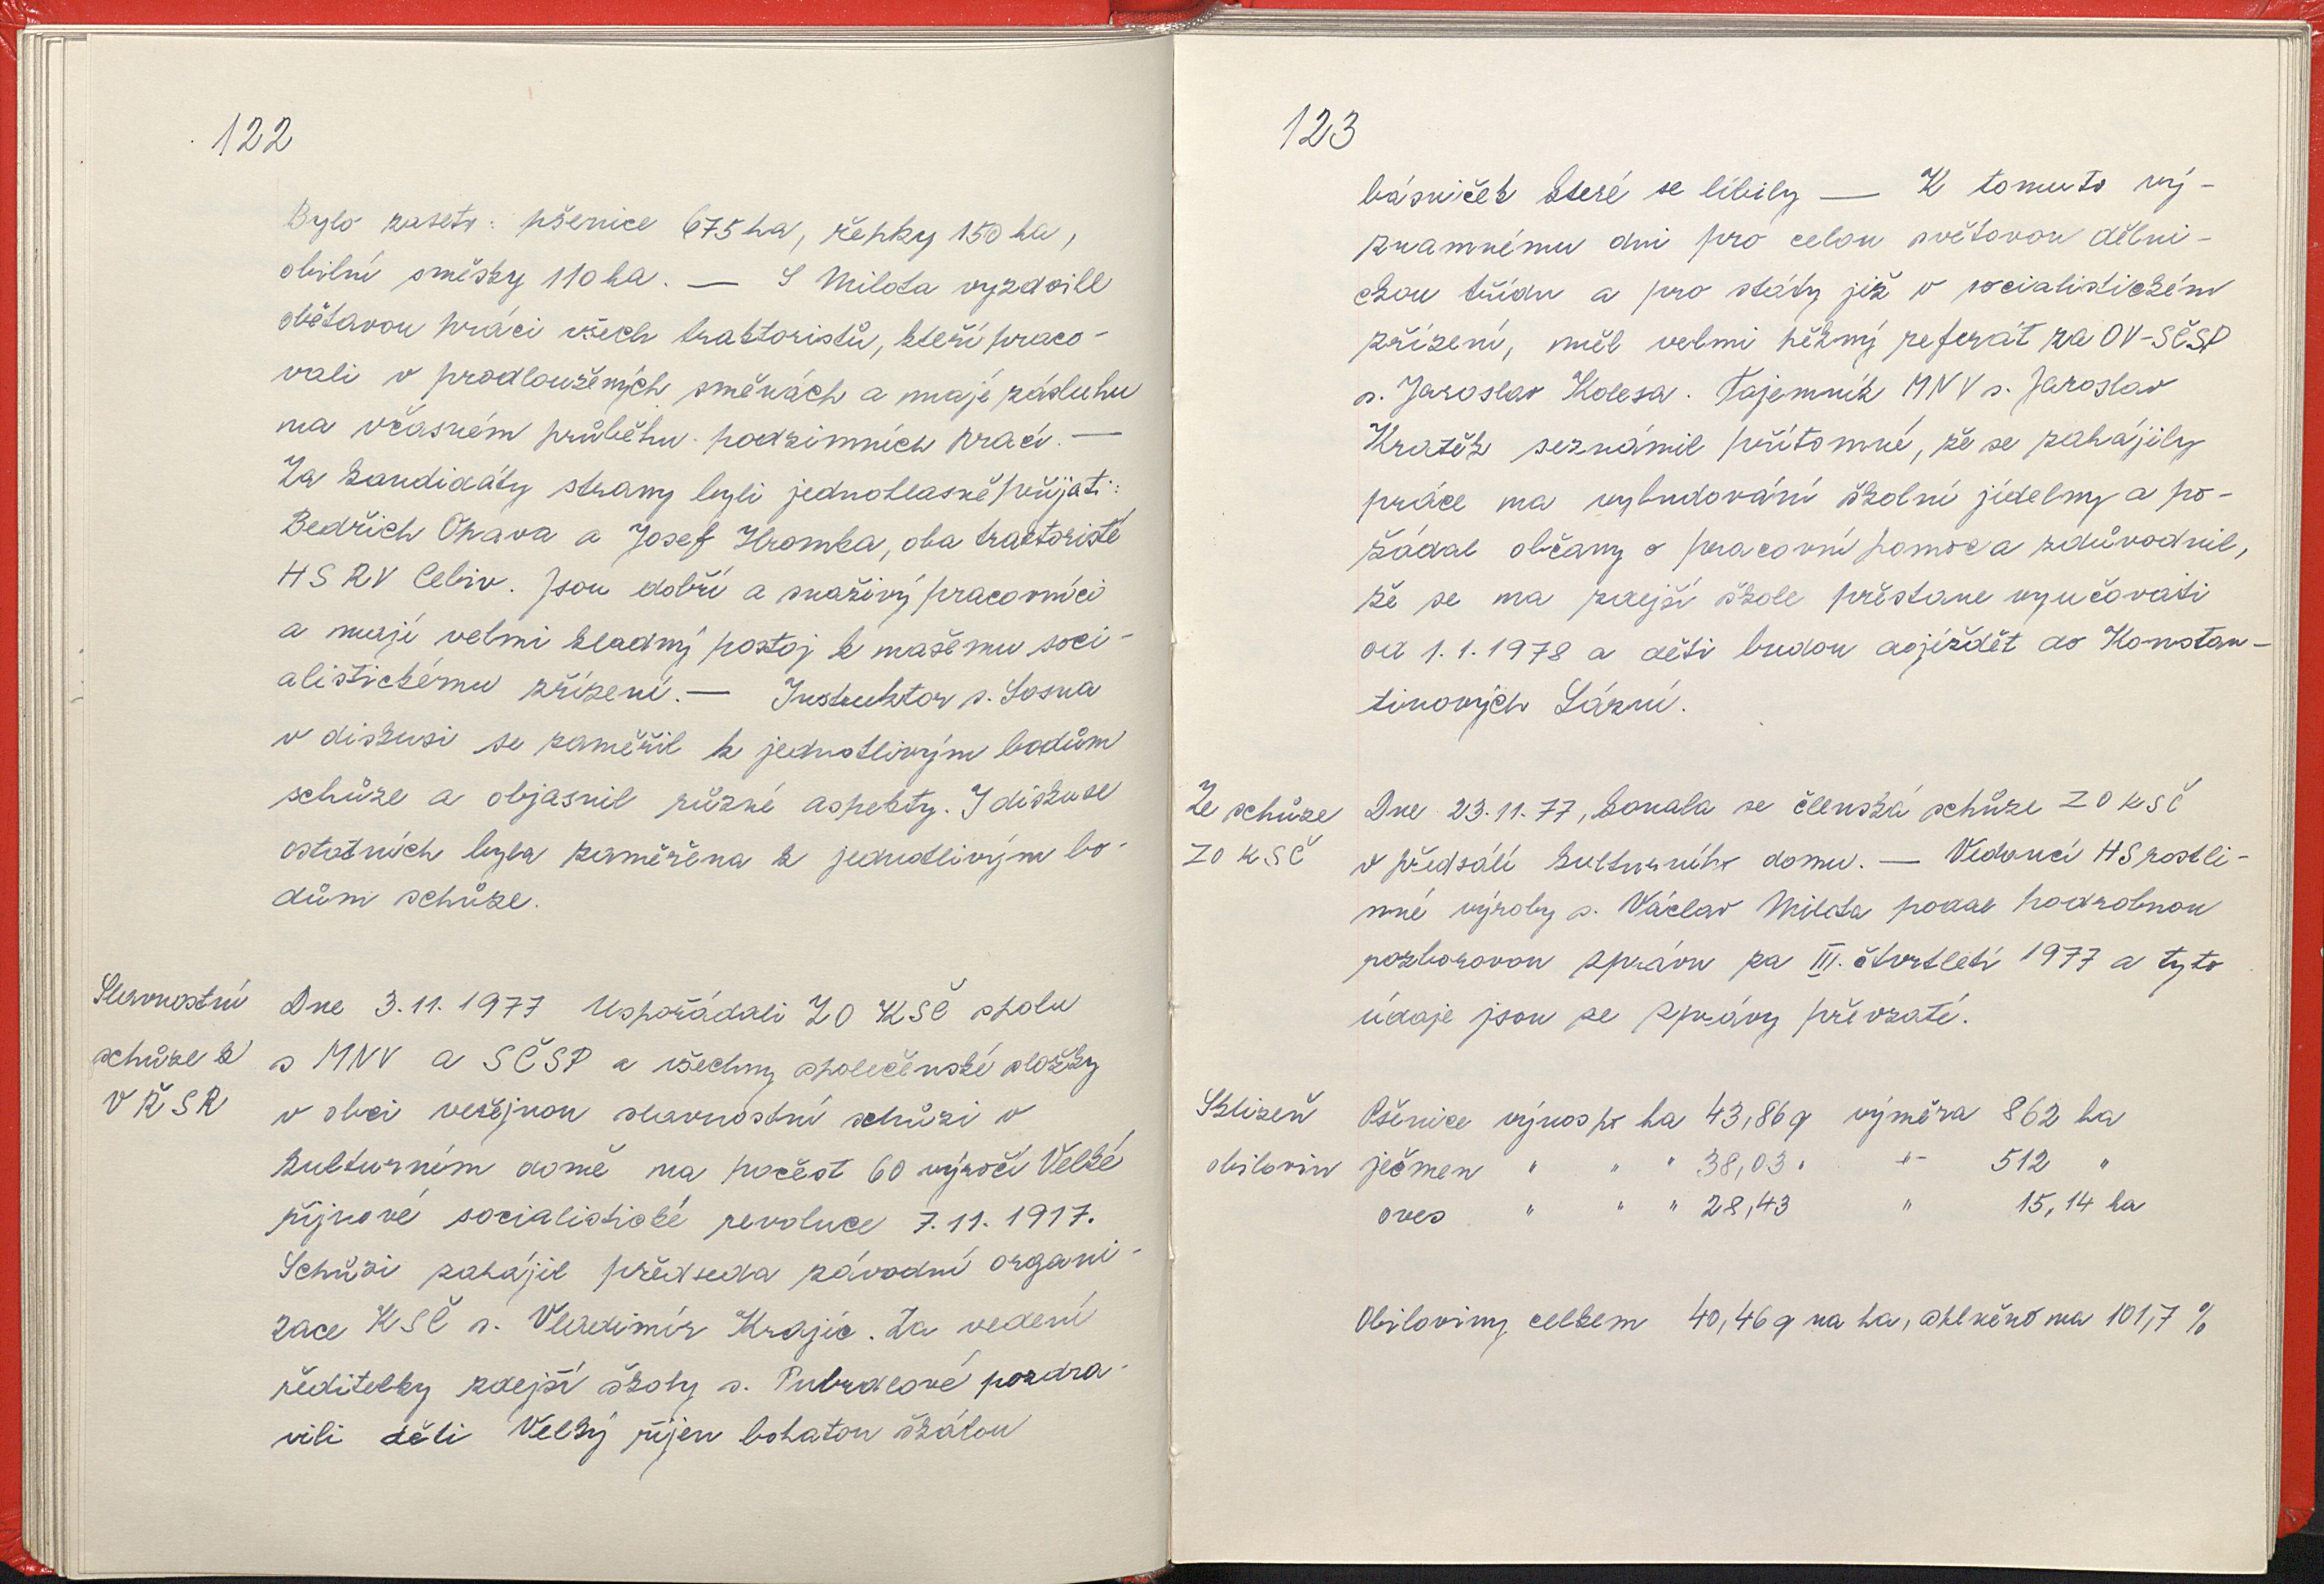 122
Bylo zaseto: pšenice 675 ha, řepky 150 ha,
obilní směsky 110 ha. — S Milota vyzdvill
obětavou práci všech traktoristů, kteří praco-
vali v prodloužených směnách a mají zásluhu
na včasném průběhu podzimních prací. —
Za kandidáty strany byli jednohlasně přijati:
Bedřich Opava a Josef Hromka, oba traktoristé
HS RV Cebiv. Jsou dobří a snaživý pracovníci
a mají velmi kladný postoj k našemu soci-
alistickému zřízení. — Instruktor s. Sosna
v diskusi se zaměřil k jednotlivým bodům
schůze a objasnil různé aspekty. I diskuse
ostatních byla zaměřena k jednotlivým bo-
dům schůze.
Slavnostní
schůze k
VŘSR
Dne 3.11.1977 Uspořádali ZO KSČ spolu
s MNV a SČSP a všechny společenské složky
v obci veřejnou slavnostní schůzi v
kulturním domě na počest 60 výročí Velké
říjnové socialistické revoluce 7.11.1917.
Schůzi zahájil předseda závodní organi-
zace KSČ s. Vladimír Krajíc. Za vedení
ředitelky zdejší školy s. pozdra-
vili děti Velký říjen bohatou škálou
123
básniček které se líbily — K tomuto vý-
znamnému dni pro celou světovou dělni-
ckou třídu a pro státy již v socialistickém
zřízení, měl velmi pěkný referát za OV-SČSP
s. Jaroslav Kolesa. Tajemník MNV s. Jaroslav
Kratěk seznámil přítomné, že se zahájily
práce na vybudování školní jídelny a po-
žádal občany o pracovní pomoc a zdůvodnil,
že se na zdejší škole přestane vyučovati
od 1.1.1978 a děti budou dojíždět do Konstan-
tinových Lázní.
Ze schůze
ZO KSČ
Dne 23.11.77, konala se členská schůze ZO KSČ
v předsálí kulturního domu. — Vedoucí HS rostli-
nné výroby s. Václav Milota podal podrobnou
rozborovou zprávu za III. čtvrtletí 1977 a tyto
údaje jsou ze zprávy převzaté.
Sklizeň
obilovin
Pšenice výnos po ha 43,86 q výměra 862 ha
ječmen " " " 38,03 " -"- 512 "
oves " " " 28,43 " 15,14 ha
Obiloviny celkem 40,46 q na ha, splněno na 101,7 %